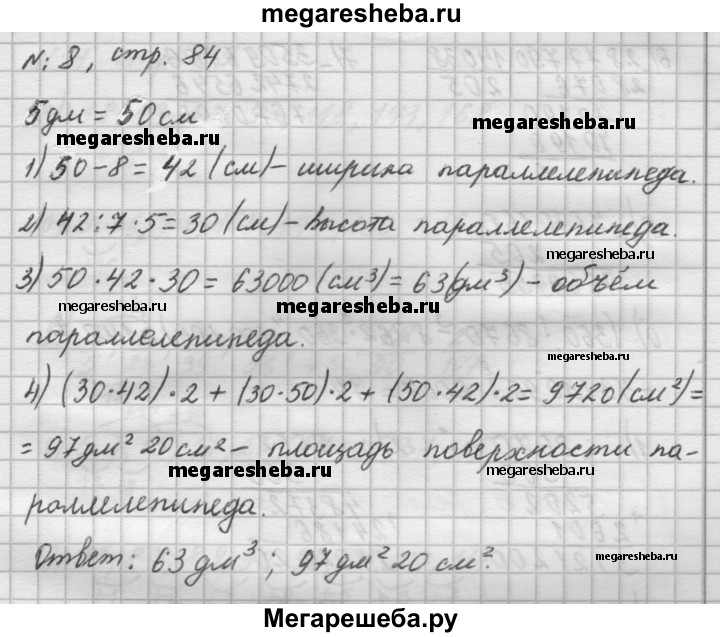 megaresheba.ru
№ 8, стр. 84
5 дм = 50 см
megaresheba.ru
megaresheba.ru
1) 50-8 = 42 (см) - ширина параллелепипеда.
2) 42:7·5=30 (см) - высота параллелепипеда.
megaresheba.ru
3) 50·42·30 = 63000 (см³) = 63(дм³) - объём
megaresheba.ru
megaresheba.ru
параллелепипеда.
megaresheba.ru
4) (30·42)·2 + (30·50)·2 + (50·42)·2= 9720(см²)=
= 97 дм² 20 см² - площадь поверхности па-
megaresheba.ru
megaresheba.ru
раллелепипеда.
Ответ: 63 дм³; 97 дм² 20 см².
megaresheba.ru
Мегарешеба.ру